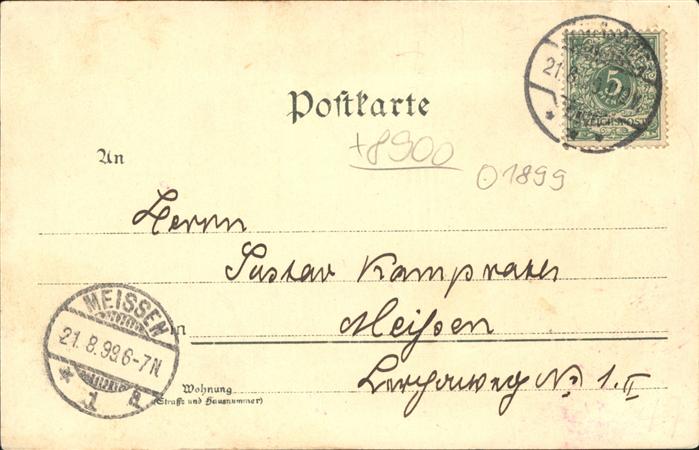 Postkarte
+8900
O 1899
An
Herrn
Gustav Kamprath
in Meißen
Wohnung
(Straße und Hausnummer)
No 1. II
MEISSEN
21.8.99.6-7N
* 1 a
21.8.
5
REICHSPOST